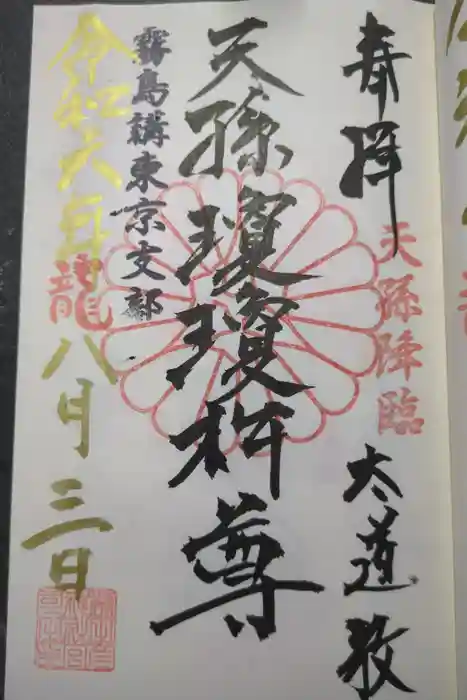 奉拝
天孫降臨
大道教
天孫瓊瓊杵尊
霧島講東京支部
令和六年龍八月三日